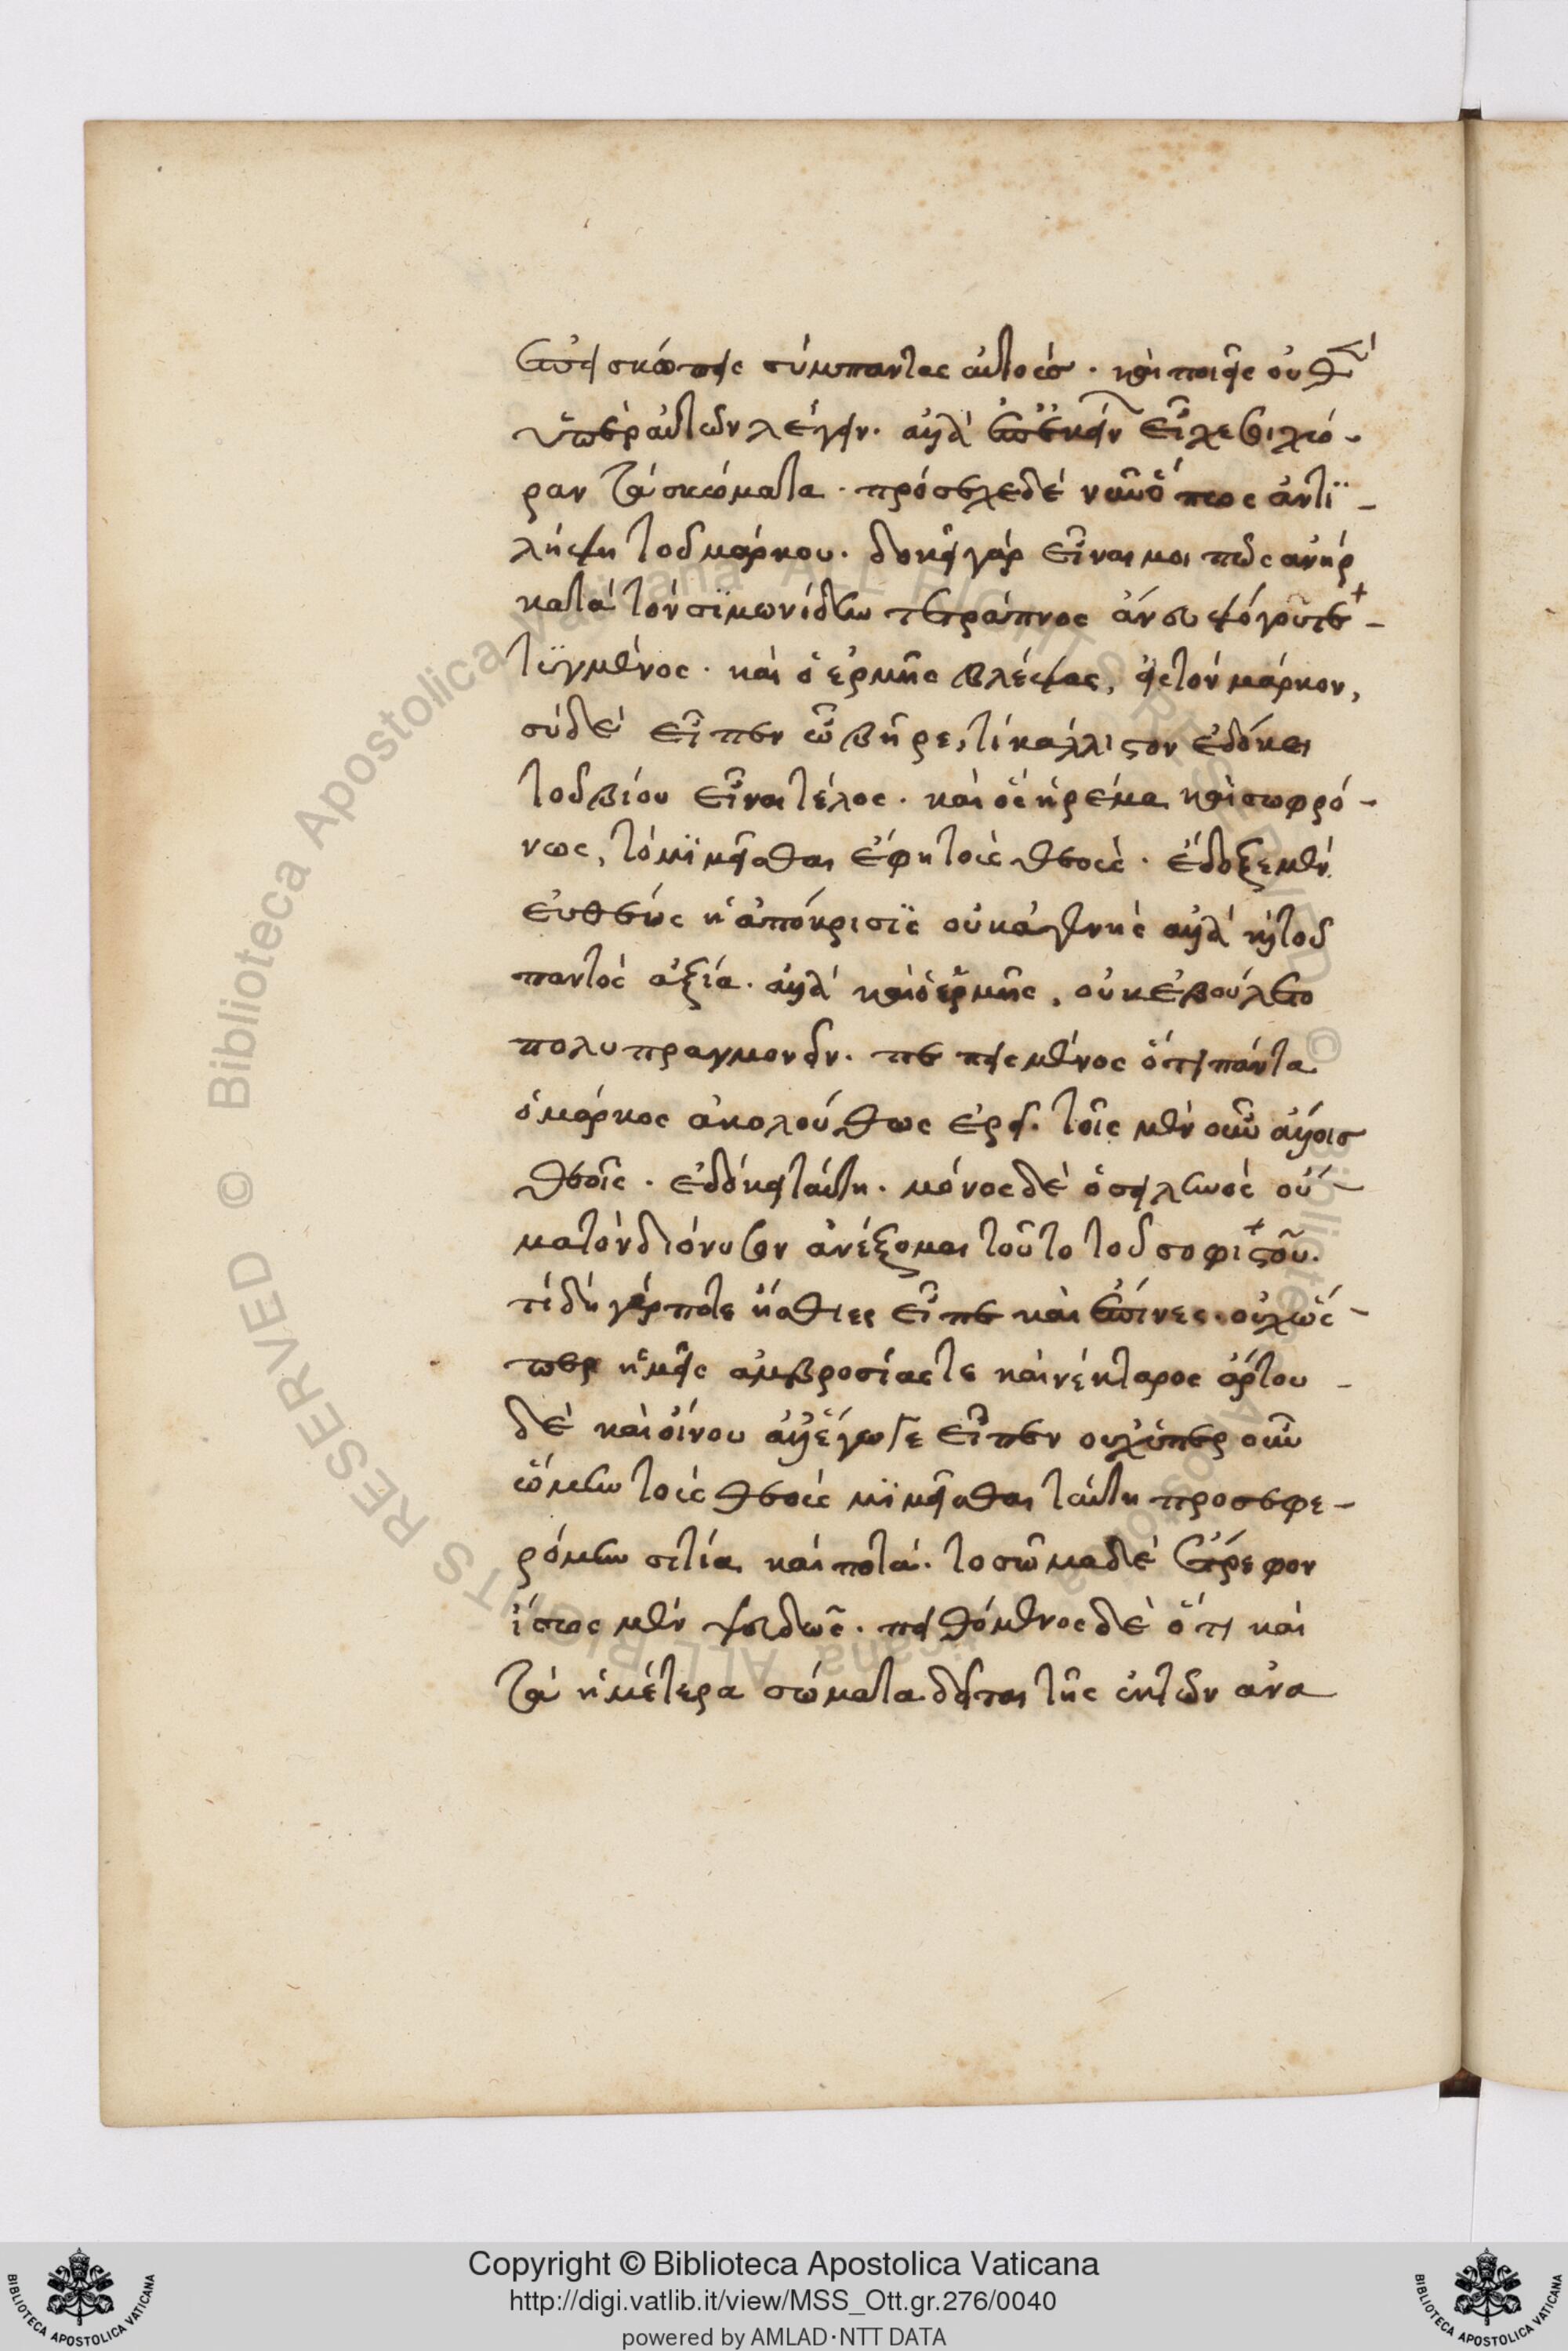 ἐπεὶ σκώπτεις σύμπαντας αὐτοὺσ · καὶ ποιεῖς οὐθὲν
ὑπὲρ αὐτῶν λέγειν · ἀλλὰ ἐπ' ἐκεῖνον εἶχε θιχώ -
ραν τὰ σκώματα · πρόσεχε δὲ νῦν ὅπως ἀντϊ -
λήψη τοῦ μάρκου · δοκεῖ γάρ εἶναι μοι πῶς ἀνήρ
κατὰ τὸν σϊμωνίδην τετράπνος ἄνευ ψόγου τε -
τϋγμένος · καὶ ὁ ἑρμῆς βλέψας, εἰς τὸν μάρκον,
σὺ δὲ εἶπεν ὦ βῆρε, τί κάλλιστον ἐδόκει
τοῦ βίου εἶναι τέλος · καὶ ὃς ἠρέμα καὶ σωφρό -
νως, τὸ μϊμεῖσθαι ἔφη τοὺς θεοὺς · ἔδοξε μὲν
εὐθέως ἡ ἀπόκρισϊς οὐκ ἀγενὴς ἀλλὰ καὶ τοῦ
παντὸς ἀξία · ἀλλὰ καὶ ὁ ἑρμῆς, οὐκ ἐβούλετο
πολυπραγμονεῖν · πεπεισμένος ὅτι πάντα
ὁ μάρκος ἀκολούθως ἐρεῖ · τοῖς μὲν οὖν ἄλλοισ
θεοῖς · ἐδόκει ταύτη · μόνος δὲ ὁ σειληνὸς οὐ -
μα τὸν διόνυσον ἀνέξομαι τοῦτο τοῦ σοφιστοῦ.
τί δὴ γάρ ποτε ἤσθιες εἶπε καὶ ἔπινες · οὐχ ὥς -
περ ἡμεῖς ἀμβροσίας τε καὶ νέκταρος ἄρτου -
δὲ καὶ οἴνου ἀλλ' ἔγωγε εἶπεν οὐχ ὅπερ οὖν
ὤμην τοὺς θεοὺς μϊμεῖσθαι ταύτη προσεφε -
ρόμην σιτία καὶ ποτά · το σῶμα δὲ ἔτρεφον
ἴσως μὲν ψευδῶς · πειθόμενος δὲ ὅτι καὶ
τὰ ἡμέτερα σώματα δεῖται τῆς ἐκ τῶν ἀνα
Copyright © Biblioteca Apostolica Vaticana
http://digi.vatlib.it/view/MSS_Ott.gr.276/0040
powered by AMLAD·NTT DATA